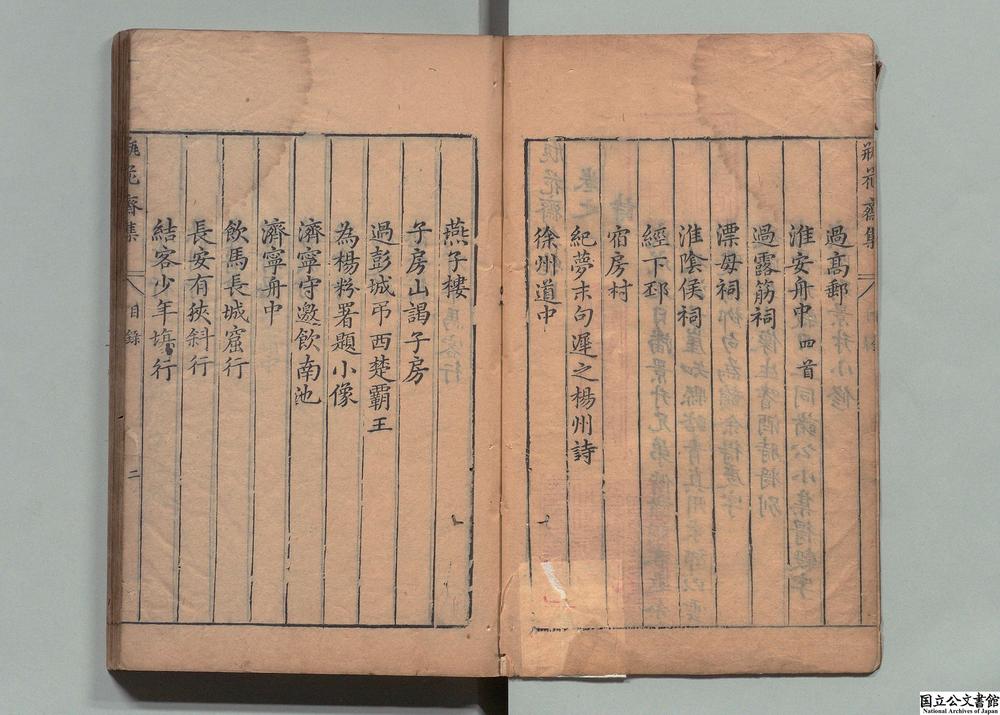 瓶花齋集
過高郵
淮安舟中四首
過露筋祠
漂母祠
淮陰侯祠
經下邳
宿房村
紀夢末句遲之楊州詩
徐州道中
燕子樓
子房山謁子房
過彭城弔西楚霸王
為楊粉署題小像
濟寧守邀飲南池
濟寧舟中
飲馬長城窟行
長安有狹斜行
結客少年場行
瓶花齋集
目錄
二
国立公文書館
National Archives of Japan